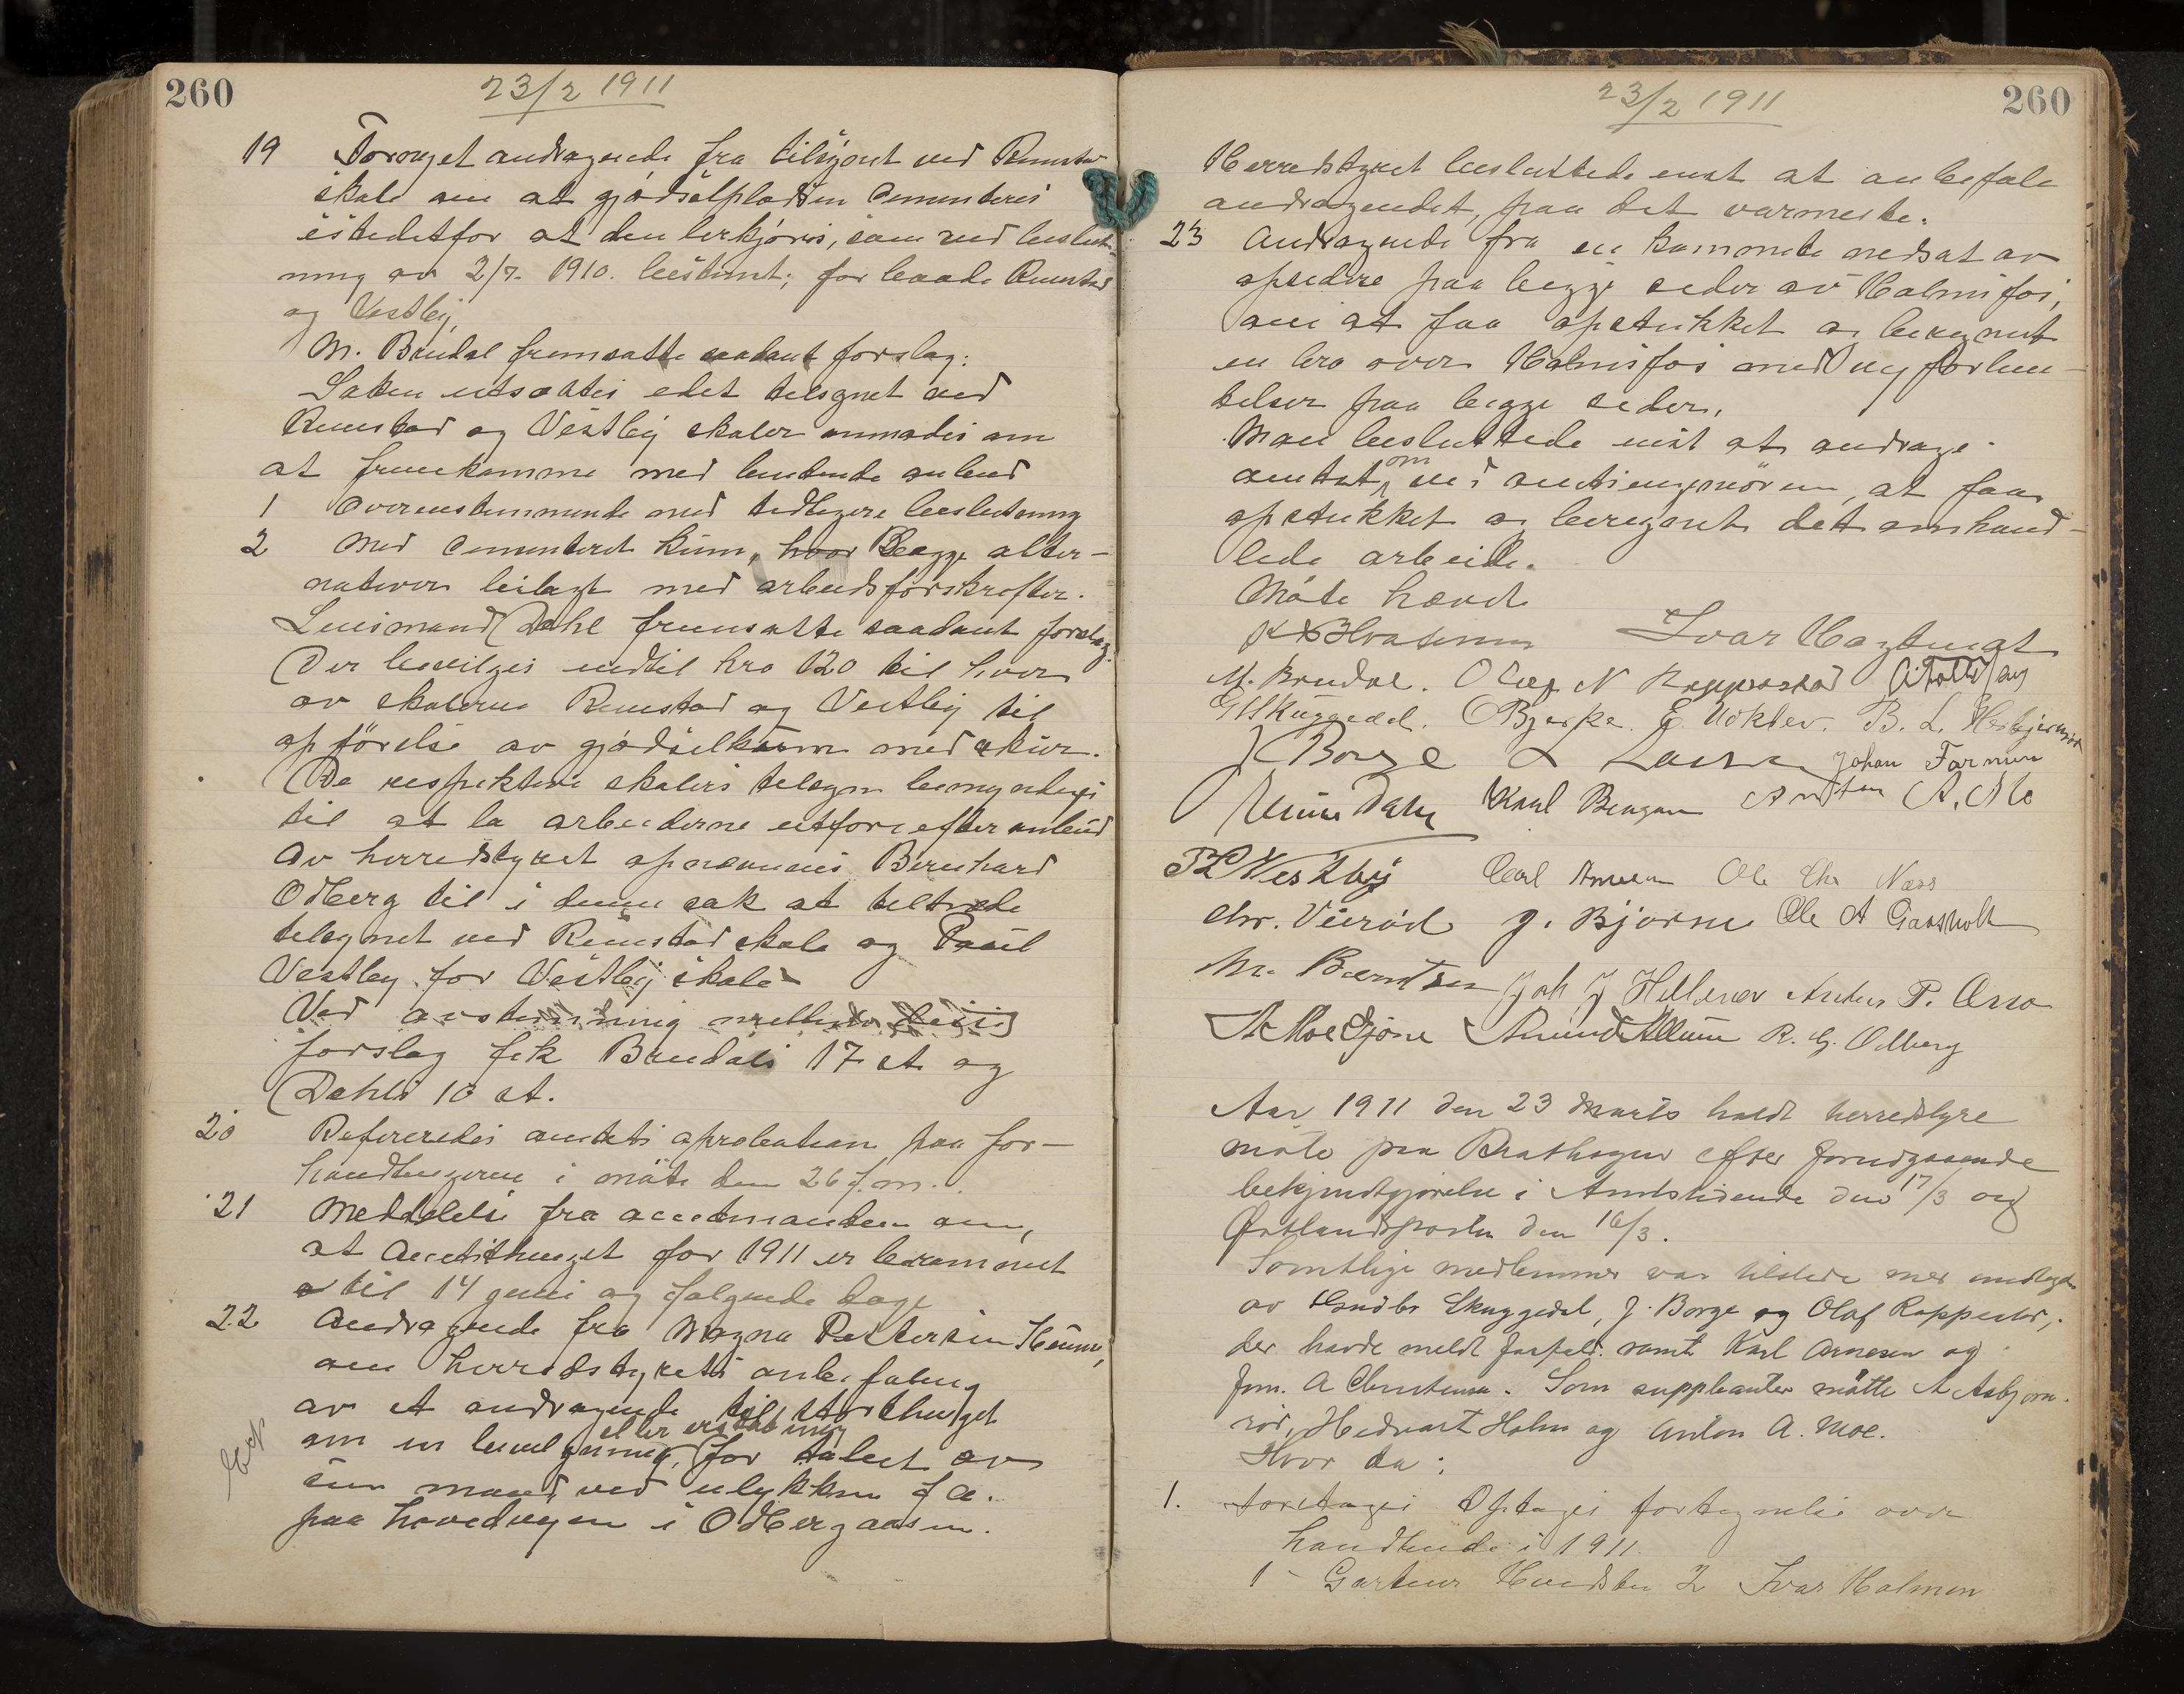 260
23/2 1911
19 Foroviget andragende fra tilsynet ved Rimstad
skole om at gjødselpladsen cementeres
istedetfor at den lerkjøres, som ved beslut-
ning av 2/7. 1910. bestemt; for baade Rimstad
og Vestby,
M. Brudal fremsatte saadant forslag:
Saken utsættes idet tilsynet ved
Rimstad og Vestby skoler anmodes om
at fremkomme med bindende anbud
1 Overensstemmende med tidligere beslutning
2 Med cementeret kum, hver Begge alter-
nativer bilagt med arbeidsforskrifter.
Lensmand Dahl fremsatte saadant forslag:
Der bevilges indtil kro 120 til hver
av skolerne Rimstad og Vestby til
opførelse av gjødselkum med skur.
De respektive skolers tilsyn bemyndiges
til at la arbeiderne utføre efter anbud
Av herredstyret opnævnes Bernhard
Odberg til i denne sak at tiltræde
tilsynet ved Rimstad skole og Paul
Vestby for Vestby skole
Ved avstemning mellem disse
forslag fik Brudals 17 st og
Dahls 10 st.
20 Refereredes amtets aprobation paa for-
handlingerne i møte den 26 f.m.
21 Meddelelse fra amtmanden om,
at Amtsthinget for 1911 er berammet
til 14 juni og følgende dage
22 Andragende fra Magna Pettersen Heum,
om herredstyrets anbefaling
av et andragende til Storthinget
eller erstatning
om en bevilgning, for tabet av
sin mand ved ulykken f a.
paa hovedveien i Odbergaasen.
Exp
23/2 1911
260
Herredstyret besluttede enst at anbefale
andragendet, paa det varmeste.
23 Andragende fra en kommite nedsat av
opsidere paa begge sider av Holmfos,
om at faa opstukket og beregnet
en bro over Holmfos med ny forbin-
delser paa begge sider,
Man besluttede enst at andrage
om
amtet, ved amtsingeniøren, at faa
opstukket og beregnet det omhand-
lede arbeide.
Møte hævet
Ivar Hagtvedt
M. Brudal. Olaf N Roppestad
G Skuggedal. O Bjerke. E. B. L.
J Borge Johan Farmen
Dahl Karl Bengen Anton A. Mo
P L Vestby Carl Arnesen Ole Chr Næss
Chr. Veierød J. Bjørne Ole A Gaasholt
M. Berntsen Joh J Hellenes Anders P. Orro
A Moe Gjone Amund Allum R. G. Odberg
Aar 1911 den 23 marts holdt herredstyre
møte paa Brathagen efter forutgaaende
bekjendtgjørelse i Amtstidende den 17/3 og
Østlandsposten den 16/3.
Samtlige medlemmer var tilstede med undtagelse
av Gudbr Skuggedal, J. Borge og Olaf Roppestad,
der havde meldt forfald. samt Karl Arnesen og
Jom. A Christensen. Som suppleanter møtte A Asbjørn-
rød, Hedvart Holm og Anton A. Moe.
Hvor da:
1. Foretages Optages fortegnelse over
handlende i 1911.
1 - Gartner Hvidsten 2 Ivar Holmen